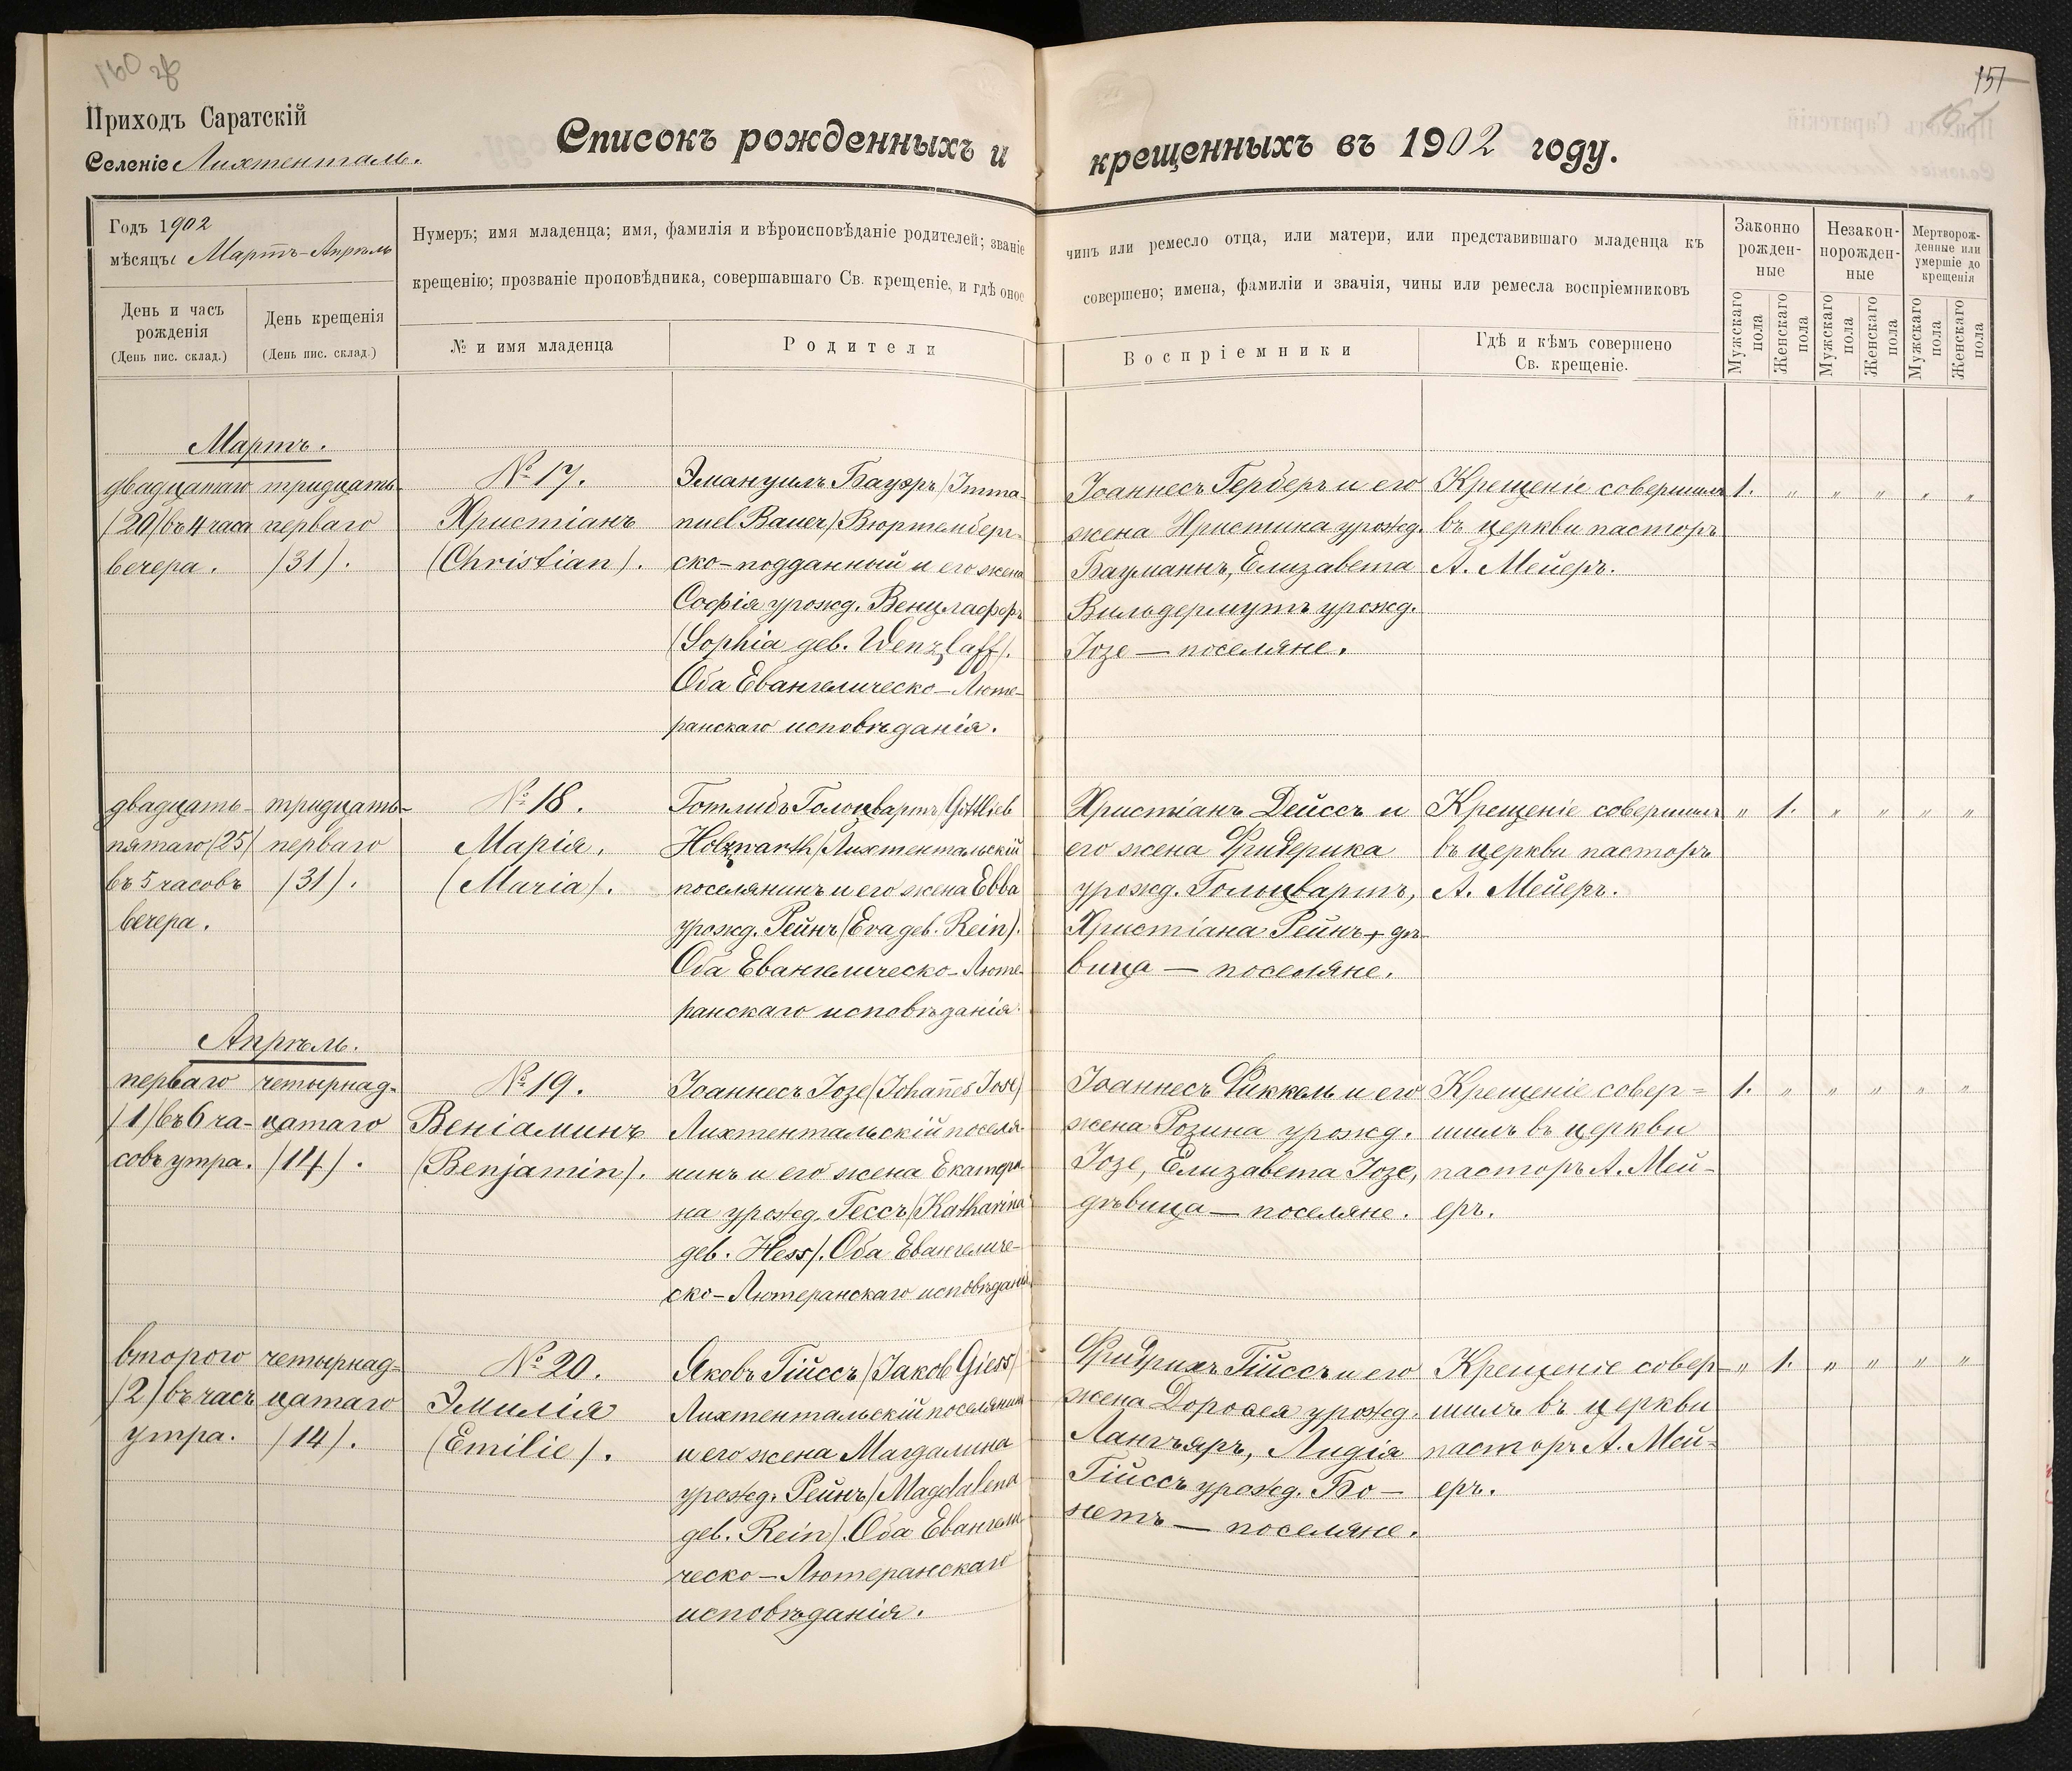 160 об
Приходъ Саратскій
Селеніе Лихтенталь.
Списокъ рожденныхъ и
крещенныхъ въ 1902 году.
151
161
Годъ 1902
мѣсяцы Мартъ-Апрѣль
День и часъ рожденія
(День пис. склад.)
День крещенія
(День пис. склад.)
Нумеръ; имя младенца; имя, фамилія и вѣроисповѣданіе родителей; званіе
крещенію; прозваніе проповѣдника, совершавшаго Св. крещеніе, и гдѣ оное
№ и имя младенца
Родители
чинъ или ремесло отца, или матери, или представившаго младенца къ
совершено; имена, фамиліи и званія, чины или ремесла воспріемниковъ
Воспріемники
Гдѣ и кѣмъ совершено
Св. крещеніе.
Законно
рожден-
ные
Незакон-
норожден-
ные
Мертворож-
денные или
умершіе до
крещенія
Мужскаго пола
Женскаго пола
Мужскаго пола
Женскаго пола
Мужскаго пола
Женскаго пола
Мартъ.
двадцатаго
/20/ въ 4 часа
вечера.
тридцать-
перваго
/31/.
№ 17.
Христіанъ
(Christian).
Эмануилъ Бауэръ /Imma-
nuel Bauer/ Вюртемберг-
ско-подданный и его жена
Софія урожд. Венцлаффъ
(Sophia geb. Wenzlaff).
Оба Евангелическо-Люте-
ранскаго исповѣданія.
Іоаннесъ Герберъ и его
жена Христина урожд.
Бауманнъ, Елизавета
Вильдермутъ урожд.
Іозе — поселяне.
Крещеніе совершилъ
въ церкви пасторъ
А. Мейеръ.
1. " " " " "
двадцать-
пятаго /25/
въ 5 часовъ
вечера.
тридцать-
перваго
/31/.
№ 18.
Марія.
(Maria).
Готлибъ Голцвартъ /Gottlieb
Holzwarth/ Лихтентальскій
поселянинъ и его жена Евва
урожд. Рейнъ (Eva geb. Rein).
Оба Евангелическо-Люте-
ранскаго исповѣданія.
Христіанъ Дейссъ и
его жена Фридерика
урожд. Гольцвартъ,
Христіана Рейнъ, дѣ-
вица — поселяне.
Крещеніе совершилъ
въ церкви пасторъ
А. Мейеръ.
" 1. " " " "
Апрѣль.
перваго
/1/ въ 6 ча-
совъ утра.
четырнад-
цатаго
/14/.
№ 19.
Веніаминъ
(Benjamin).
Іоаннесъ Іозе (Johannes Jose)
Лихтентальскій поселя-
нинъ и его жена Екатери-
на урожд. Гессъ /Katharina
geb. Hess/. Оба Евангеличе-
ско-Лютеранскаго исповѣданія.
Іоаннесъ Риккель и его
жена Розина урожд.
Іозе, Елизавета Іозе,
дѣвица — поселяне.
Крещеніе совер-
шилъ въ церкви
пасторъ А. Мей-
еръ.
1. " " " " "
второго
/2/ въ часъ
утра.
четырнад-
цатаго
/14/.
№ 20.
Эмилія
(Emilie).
Яковъ Гійссъ /Jakob Giess/
Лихтентальскій поселянинъ
и его жена Магдалина
урожд. Рейнъ /Magdalena
geb. Rein/. Оба Евангели-
ческо-Лютеранскаго
исповѣданія.
Фридрихъ Гійссъ и его
жена Доротея урожд.
Лангъяръ, Лидія
Гійссъ урожд. Бо-
нетъ — поселяне.
Крещеніе совер-
шилъ въ церкви
пасторъ А. Мей-
еръ.
" 1. " " " "